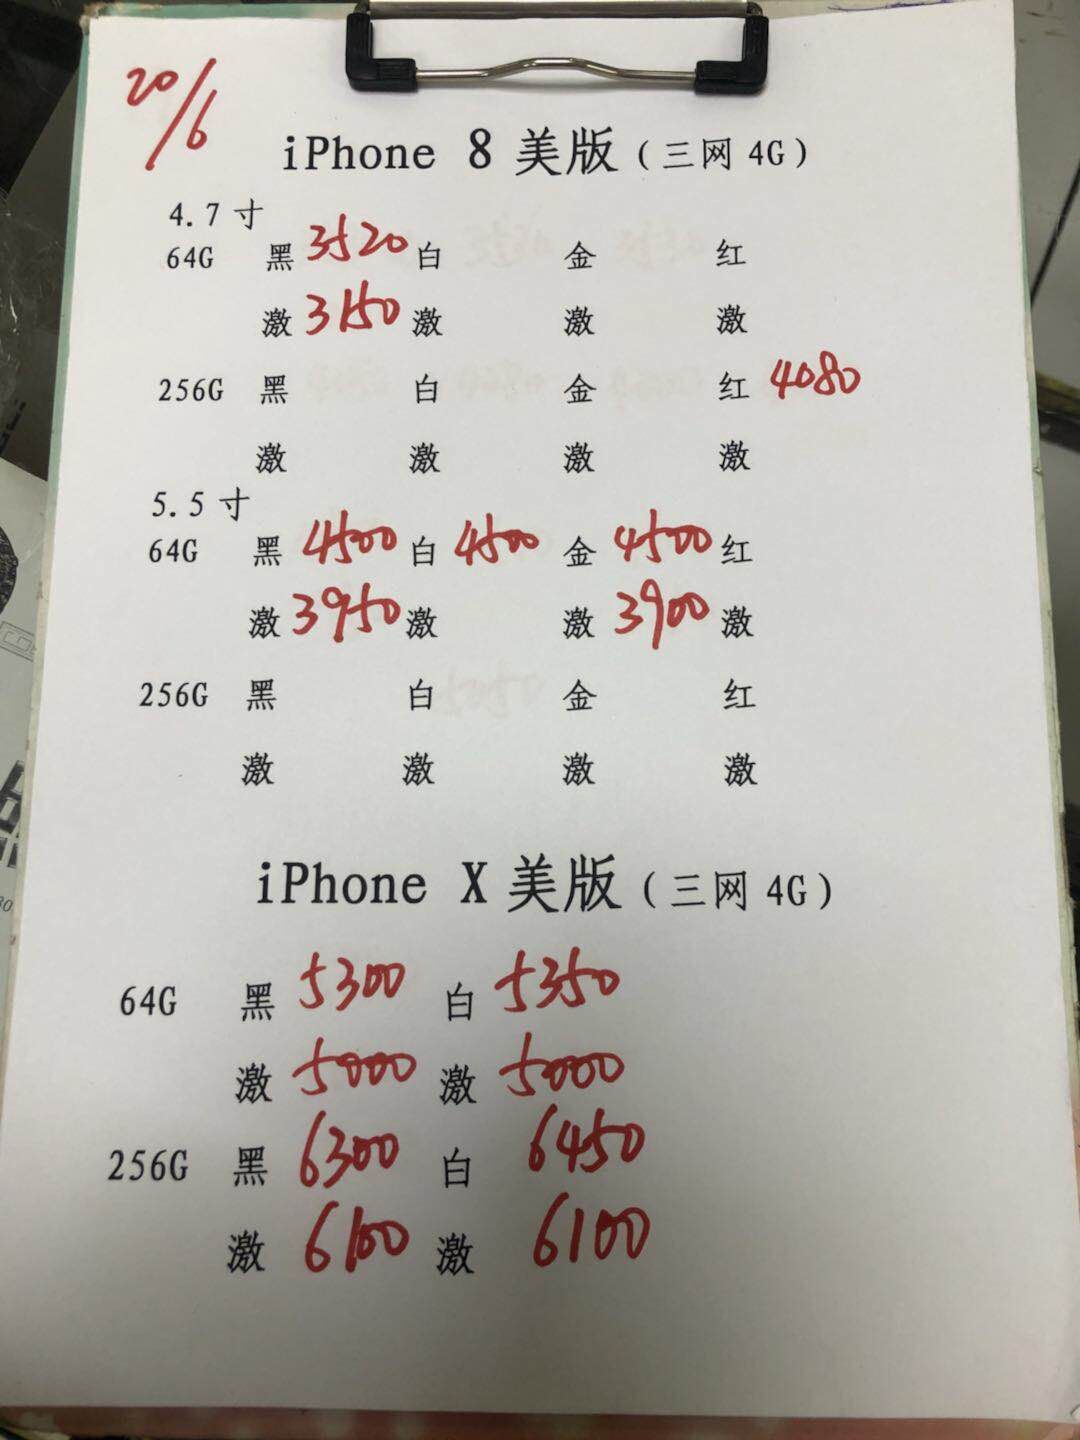 20/6
iPhone 8 美版（三网 4G）
4.7 寸
64G 黑 3520 白 金 红
激 3150 激 激 激
256G 黑 白 金 红 4080
激 激 激 激
5.5 寸
64G 黑 4500 白 4500 金 4500 红
激 3950 激 激 3900 激
256G 黑 白 金 红
激 激 激 激
iPhone X 美版（三网 4G）
64G 黑 5300 白 5350
激 5000 激 5000
256G 黑 6300 白 6450
激 6100 激 6100